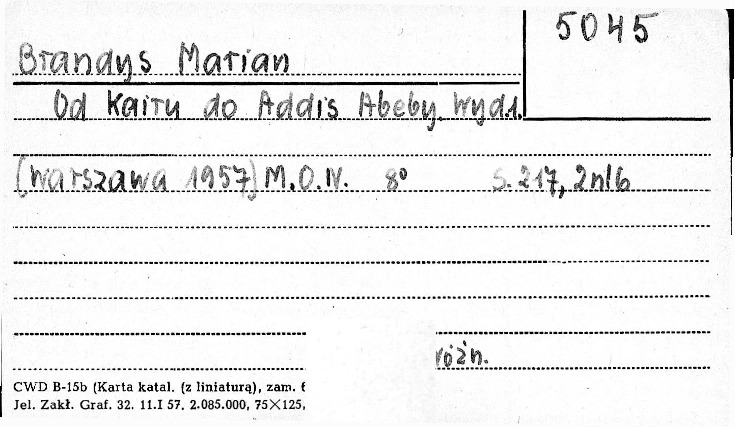 5045
Brandys Marian
Od Kairu do Addis Abeby. Wyd.1.
(Warszawa 1957) M.O.N. 8° s. 217, 2nlb
różn.
CWD B-15b (Karta katal. (z liniaturą), zam.
Jel. Zakł. Graf. 32. 11.I 57. 2.085.000, 75×125,